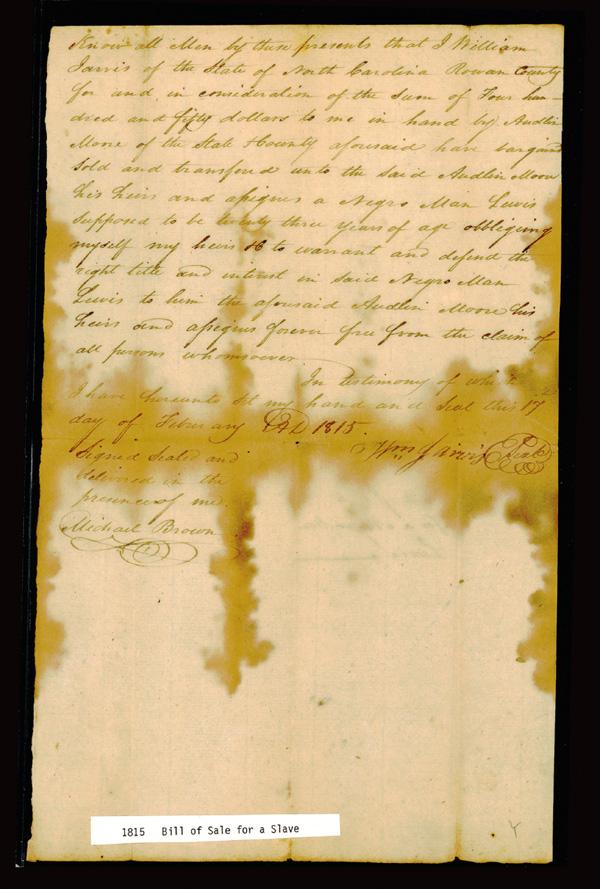 Know all Men by these presents that I William
Jarvis of the State of North Carolina Rowan County
for and in consideration of the sum of Four hun-
dred and fifty dollars to me in hand by Audlin
Moore of the State & County aforesaid have bargand
sold and transfered unto the said Audlin Moore
his heirs and assigns a Negro Man Lewis
supposed to be twenty three years of age obbligeing
myself my heirs &c to warrant and defend the
right title and interest in said Negro Man
Lewis to him the aforesaid Audlin Moore his
heirs and assigns forever free from the claim of
all persons whomsoever
In testimony of which
I have hereunto set my hand and seal this 17
day of February AD 1815.
Wm Jarvis Seal
Signed Sealed and
delivered in the
presence of me.
Michael Brown
1815 Bill of Sale for a Slave